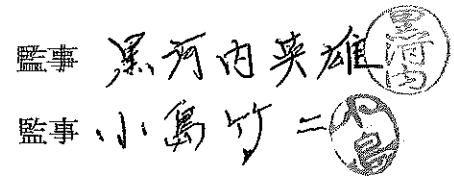 監事 黒河内英雄 黒河内
監事 小島竹二 小島